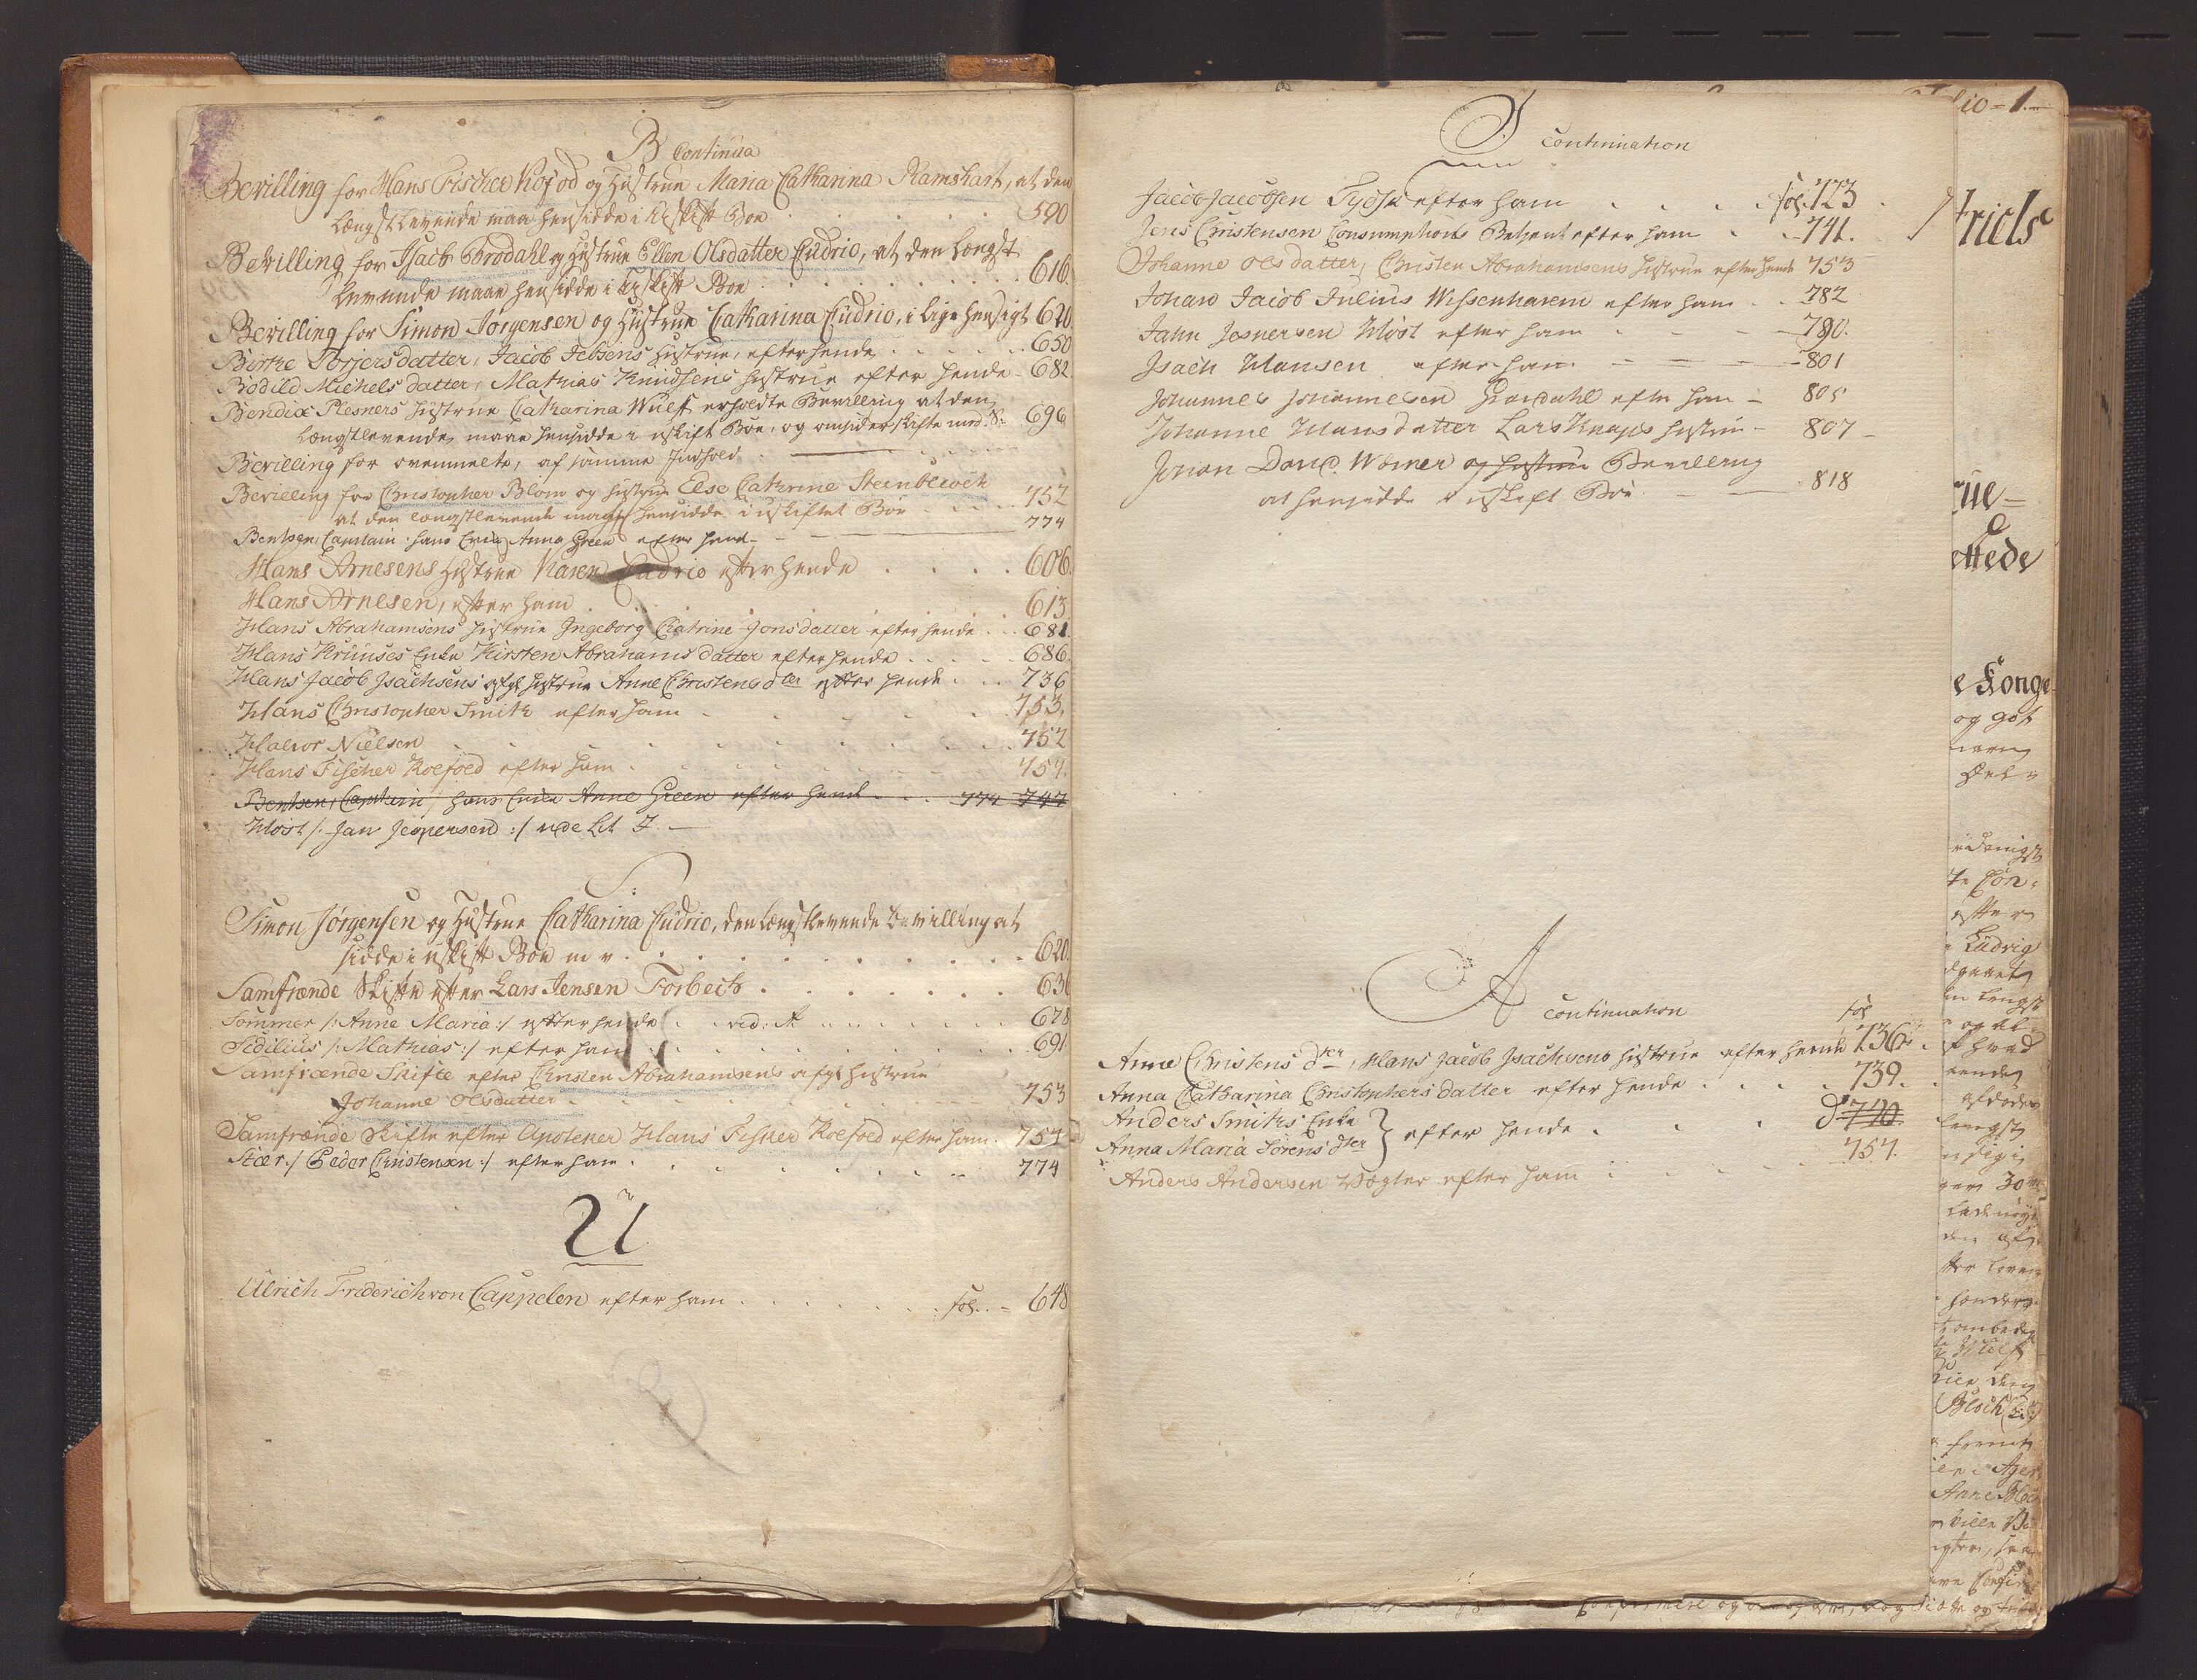 B Continua
Bevilling for Hans Fischer Kofod og Hustrue Maria Catharina Ramshart, at den
Længstlevende maa hensidde i Uskift Boe . . . . . 590
Bevilling for Isach Brodahl og Hustrue Ellen Olsdatter Cudrio, at den Længst
levende maae hensidde i Uskift Boe . . . . . 616.
Bevilling for Simon Jørgensen og Hustrue Catharina Cudrio, i lige hensigt 620
Birthe Torjersdatter, Jacob Jebsens Hustrue, efter hende . . . . 650
Bodild Michels datter, Mathias Knudsens Hustrue efter hende - 682.
Bendix Plesners Hustrue Catharina Wulff erholdte Bevilling at den
Længstlevende maae hensidde i uskift Boe, og omsider skifte med S: 696
Bevilling for ovenmelte, af samme Indhold
Bevilling for Christopher Blom og Hustrue Else Cathrine Steenbloch
at den længstlevende maae hensidde i uskiftet Boe . . . . 752
Bentsen, Capitain: hans Enke Anna Green efter hend - 774
Hans Arnesens Hustrue Karen Cudrio efter hende . . . . 606.
Hans Arnesen, efter ham . . . 613.
Hans Abrahamsens Hustrue Ingeborg Catrine Jonsdatter efter hende . . . 681.
Hans Krunses Enke Kirsten Abrahams datter efter hende . . . . 686.
Hans Jacob Isachsens afg: Hustrue Anne Christens dter efter hende . . . 736
Hans Christopher Smith efter ham . . . . . 753.
Halvor Nielsen . . . . . 752
Hans Fischer Koefoed efter ham . . . . . 754.
Bentsen, Capitain, hans Enke Anne Green efter hend . . . 774 747
Høist /: Jan Jespersen :/ vide Lit I. —
S:
Simon Jørgensen og Hustrue Catharina Cudrio, den Længstlevende bevilling at
sidde i uskift Boe m v . . . . . 620.
Samfrænde Skifte efter Lars Jensen Forbech . . . . . 636
Sommer /: Anne Maria :/ efter hende . . vid: A . . . . . 678
Sidilius /: Mathias :/ efter ham . . . . . 691
Samfrænde Skifte efter Christen Abrahamsens afg: Hustrue
Johanne Olsdatter . . . . . 753
Samfrænde Skifte efter Apoteker Hans Fisher Koefoed efter ham . 754
Stær /: Peder Christensen :/ efter ham . . . . . 774
U
Ulrich Friderich von Cappelen efter ham . . . . . fol. . = 648
I
Continuation
Jacob Jacobsen Tydsk efter ham . . . . fol. 723
Jens Christensen Consumptions Betjent efter ham . . 741.
Johanne Olsdatter, Christen Abrahamsens Hustrue efter hende 753
Johan Jacob Julius Wissenharem efter ham . . 782
Jahn Jespersen Høst efter ham - - - - 790.
Isach Hansen efter ham - - - - 801
Johannes Johannesen Grondahl efter ham - 805
Johanne Hansdatter Lars Knaps Hustru - 807 -
Johan David Wømer og Hustrue Bevilling
at hensidde i uskift Boe - - 818
A
Continuation
fol
Anne Christens dter, Hans Jacob Isachsens Hustrue efter hende 736.
Anna Catharina Christophers datter efter hende . . . . 739.
Anders Smiths Enke
Anna Maria Sørens dter } efter hende . . . do 740
Anders Andersen Vægter efter ham . . . . 757.
lio = 1.
triels
ue=
ettede
e Konge
og got
Ludrig
Bloch
Anne Bloch